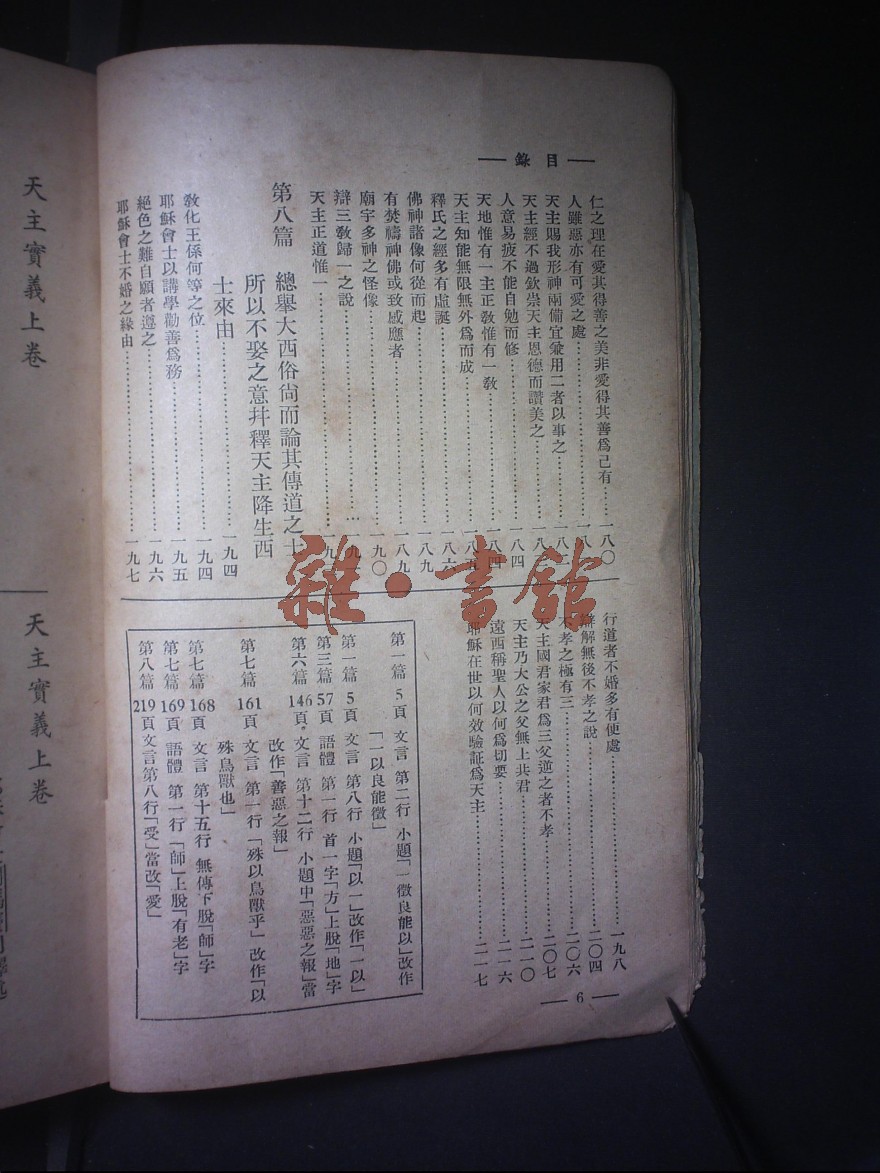 — 錄目 —
仁之理在愛其得善之美非愛得其善爲己有……一八〇
人雖惡亦有可愛之處……一八
天主賜我形神兩備宜兼用二者以事之……一八二
天主經不過欽崇天主恩德而讚美之……一八三
人意易疲不能自勉而修……一八四
天地惟有一主正敎惟有一敎……一八四
天主知能無限無外爲而成……一八五
釋氏之經多有虛誕……一八六
佛神諸像何從而起……一八九
有焚禱神佛或致感應者……一八九
廟宇多神之怪像……一九〇
辯三敎歸一之說……一九
天主正道惟一……一九
第八篇 總舉大西俗尙而論其傳道之士
所以不娶之意幷釋天主降生西
士來由……一九四
敎化王係何等之位……一九四
耶穌會士以講學勸善爲務……一九五
絕色之難自願者遵之……一九六
耶穌會士不婚之緣由……一九七
行道者不婚多有便處……一九八
辯解無後不孝之說……二〇四
不孝之極有三……二〇六
天主國君家君爲三父逆之者不孝……二〇七
天主乃大公之父無上共君……二一〇
遠西稱聖人以何爲切要……二一六
耶穌在世以何效驗証爲天主……二一七
第一篇 5頁 文言 第二行 小題「一徵良能以」改作
「一以良能徵」
第一篇 5頁 文言 第八行 小題「以一」改作「一以」
第三篇 57頁 語體 第一行 首一字「方」上脫「地」字
第六篇 146頁 文言 第十二行 小題中「惡惡之報」當
改作「善惡之報」
第七篇 161頁 文言 第一行「殊以鳥獸乎」改作「以
殊鳥獸也」
第七篇 168頁 文言 第十五行 無傳下脫「師」字
第七篇 169頁 語體 第一行「師」上脫「有老」字
第八篇 219頁 文言第八行「受」當改「愛」
— 6 —
天主實義上卷
天主實義上卷
雜·書館